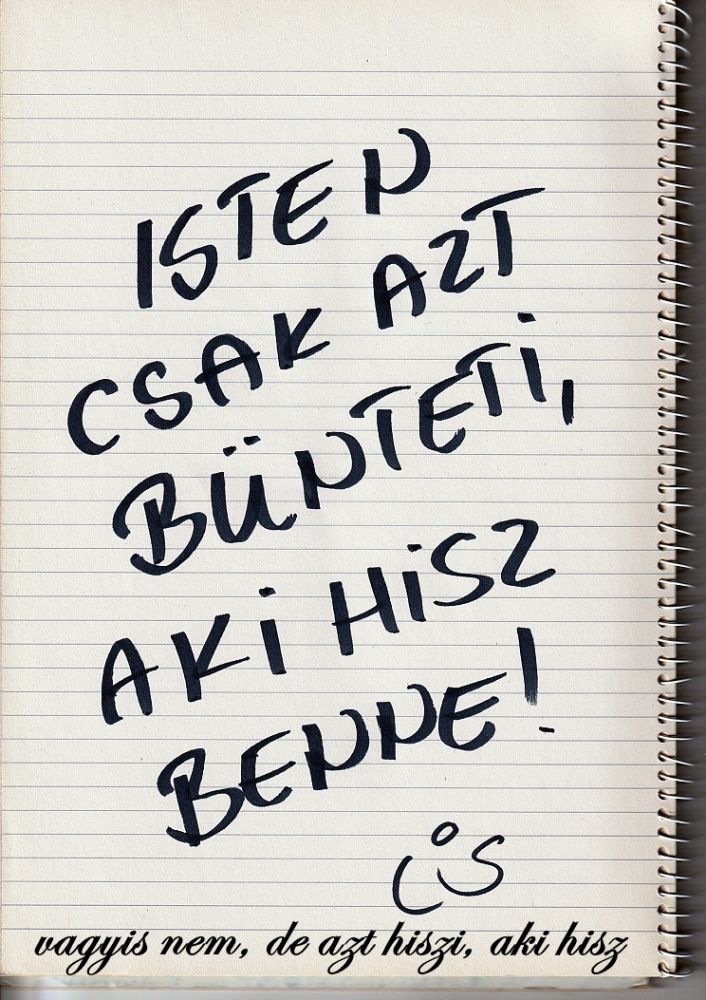 ISTEN
CSAK AZT
BÜNTETi,
AKi HiSZ
BENNE!
vagyis nem, de azt hiszi, aki hisz